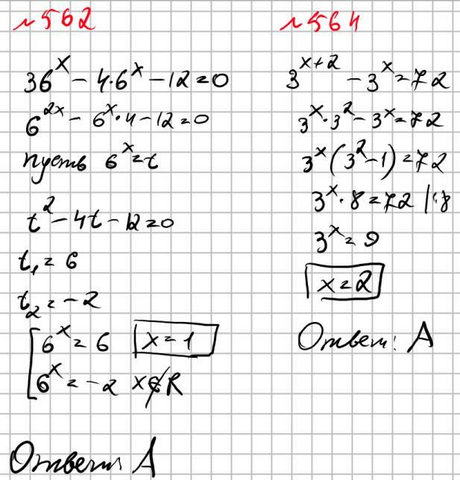 №562
36^x - 4·6^x - 12 = 0
6^{2x} - 6^x·4 - 12 = 0
пусть 6^x = t
t^2 - 4t - 12 = 0
t_1 = 6
t_2 = -2
[6^x = 6 x = 1
[6^x = -2 x∉R
Ответ: A
№564
3^{x+2} - 3^x = 72
3^x·3^2 - 3^x = 72
3^x(3^2 - 1) = 72
3^x·8 = 72 |:8
3^x = 9
x = 2
Ответ: A